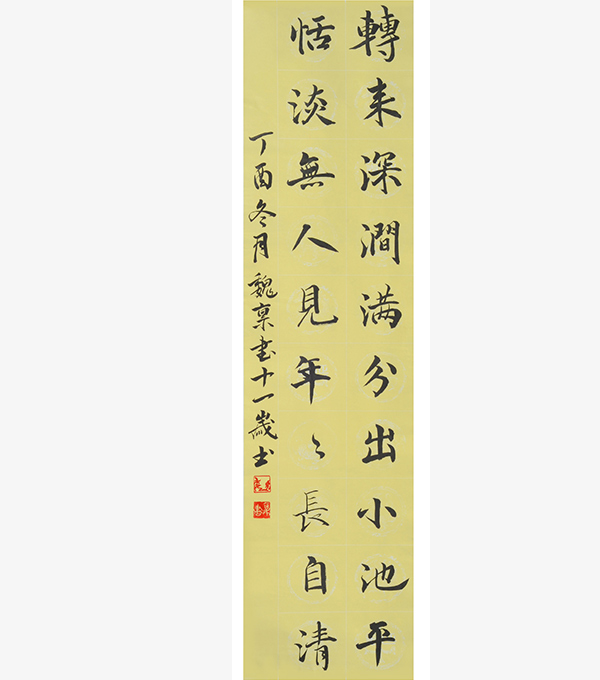 轉来深澗满分出小池平
恬淡無人見年〻長自清
丁酉冬月魏稟書十一歲书